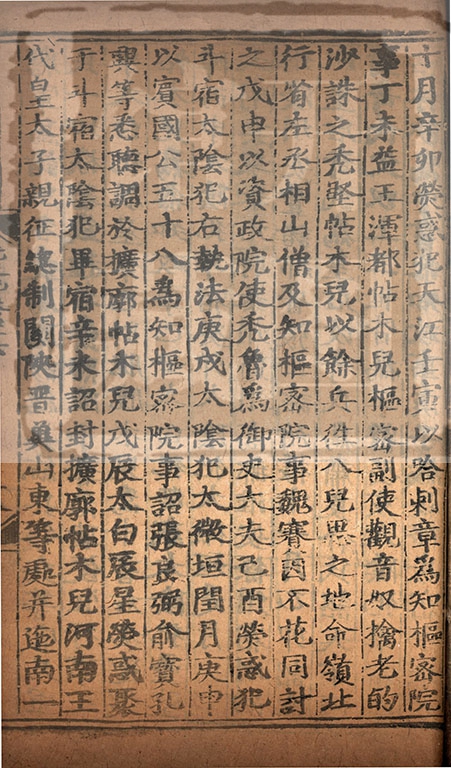 十月辛卯熒惑犯天江壬寅以哈剌章爲知樞密院
事丁未益王渾都帖木兒樞密副使觀音奴擒老的
沙誅之禿堅帖木兒以餘兵往八兒思之地命嶺北
行省左丞相山僧及知樞密院事魏賽因不花同討
之戊申以資政院使禿魯爲御史大夫己酉熒惑犯
斗宿太陰犯右執法庚戌太陰犯太微垣閏月庚申
以賓國公五十八爲知樞密院事詔張良弼俞寶孔
興等悉聽調於擴廓帖木兒戊辰太白辰星熒惑聚
于斗宿太陰犯畢宿辛未詔封擴廓帖木兒河南王
代皇太子親征總制關陝晋冀山東等處并迤南一